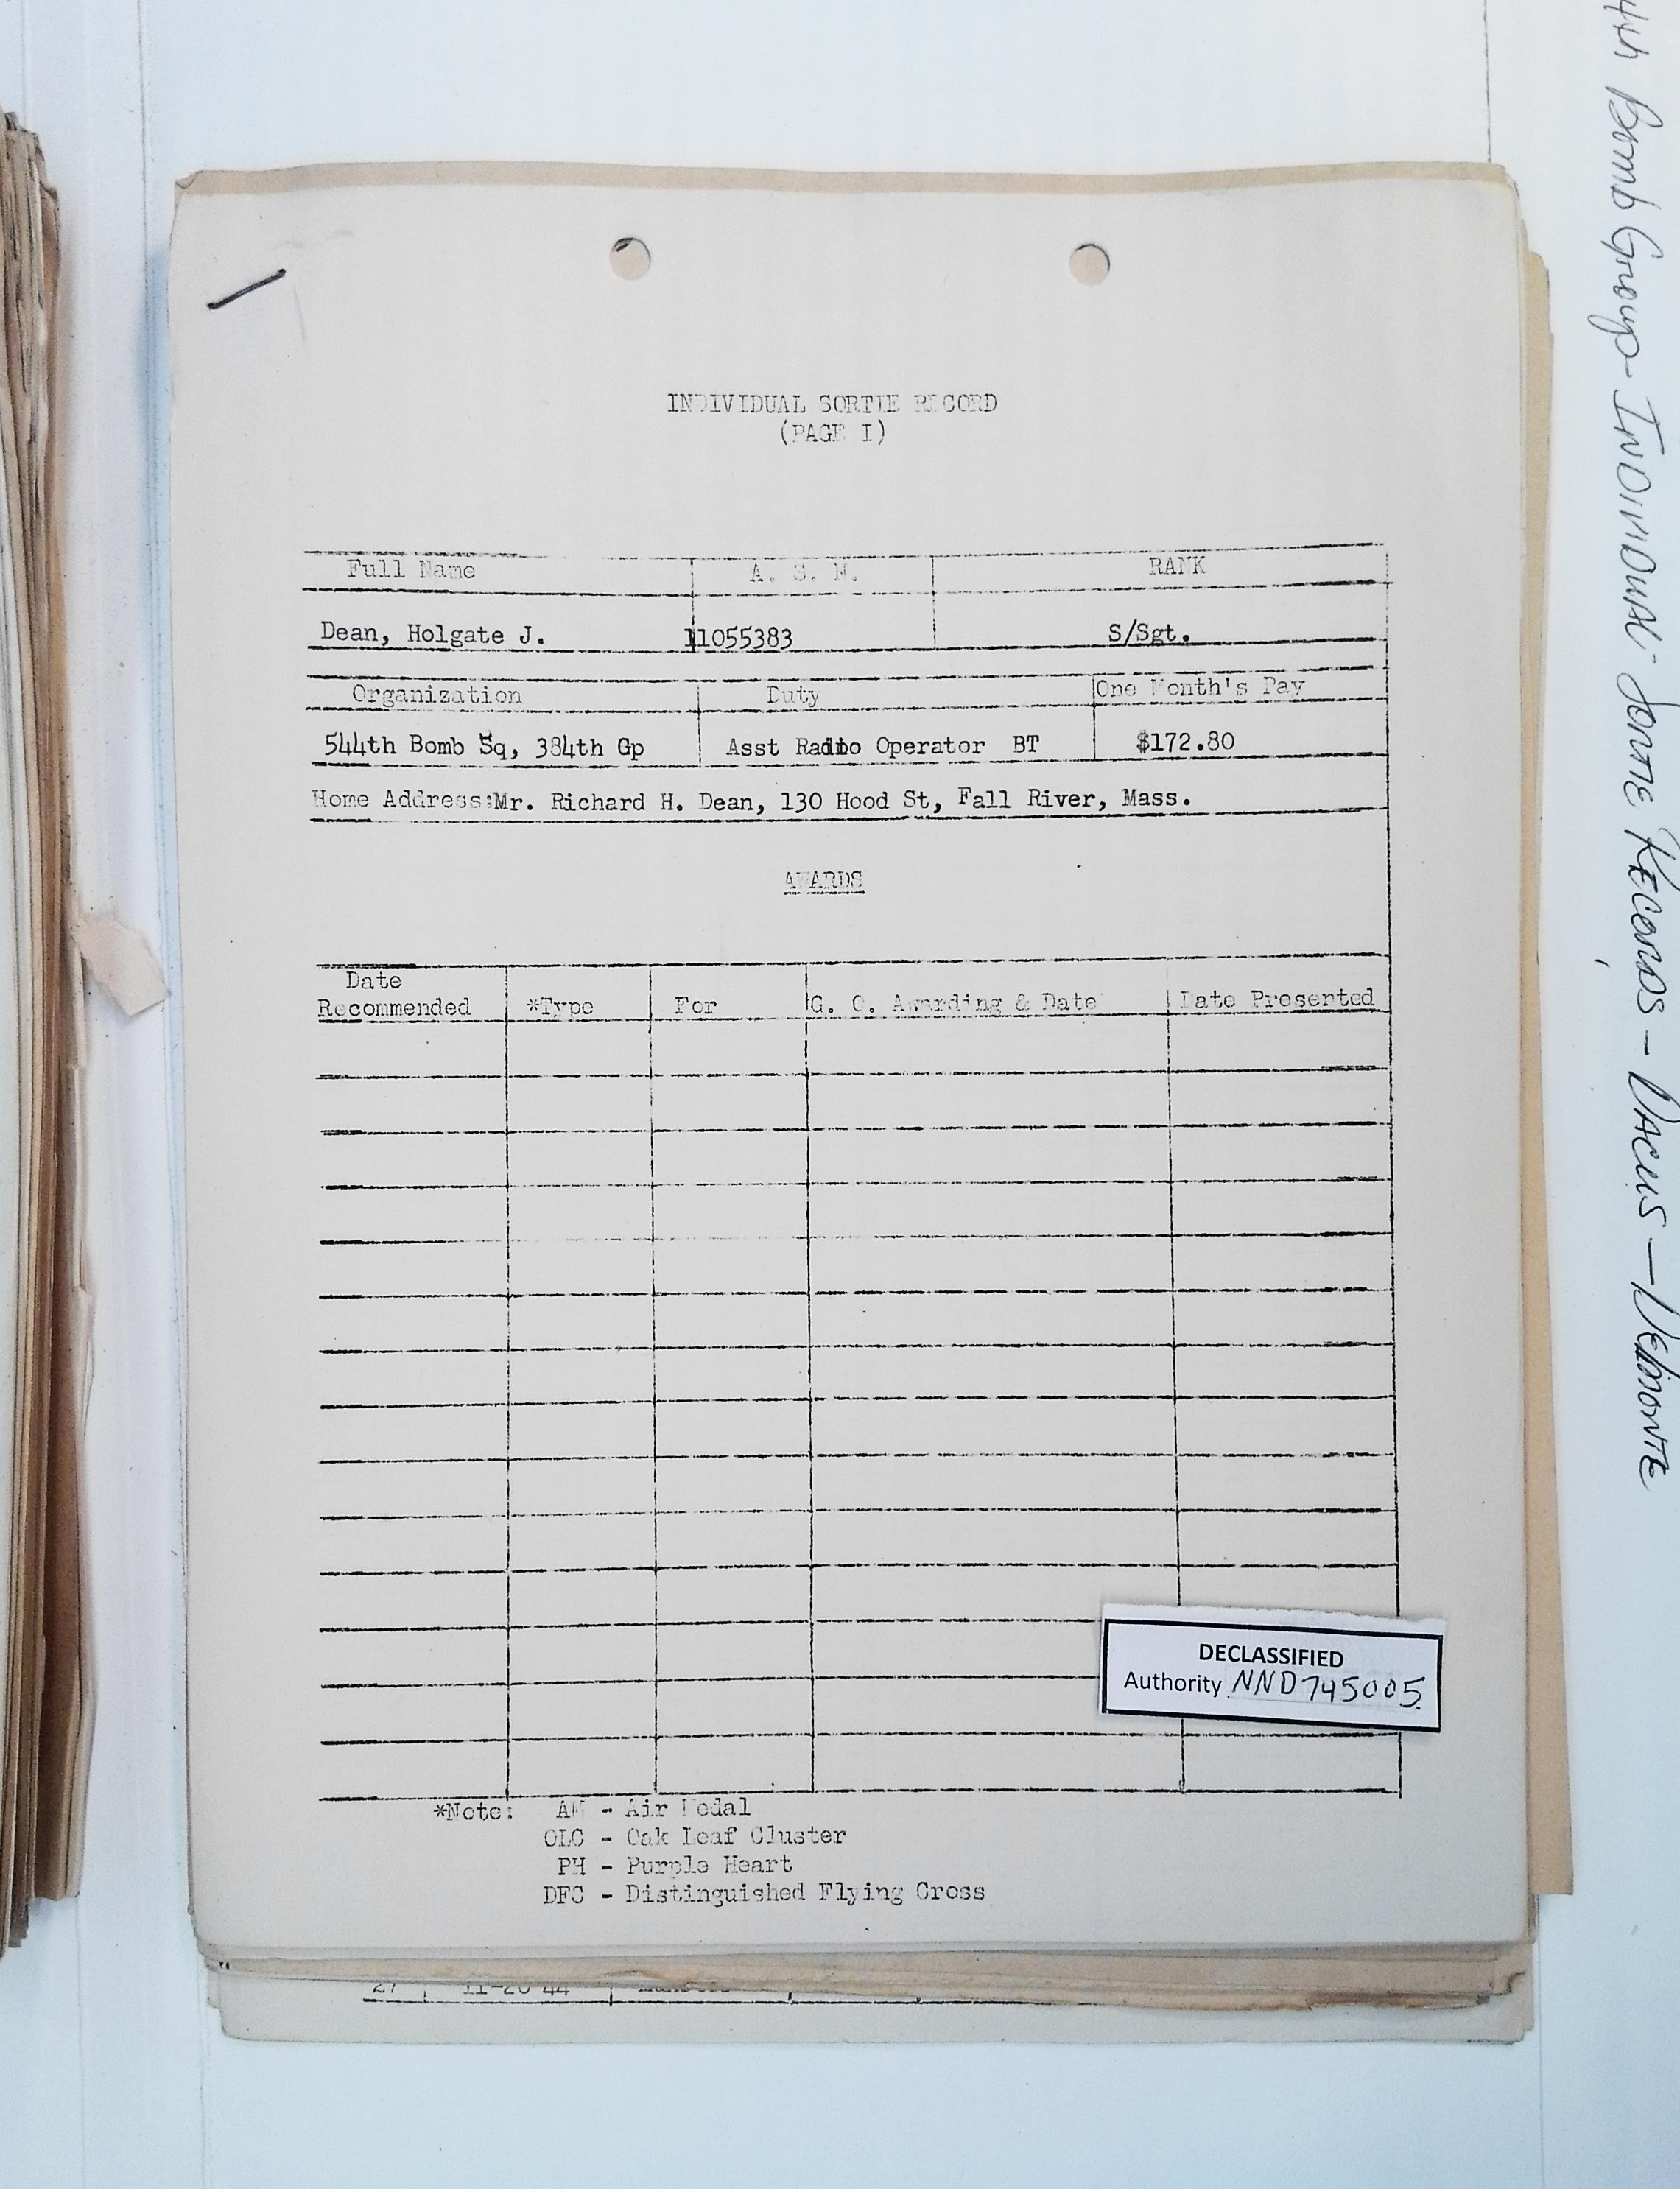 INDIVIDUAL SORTIE RECORD
(PAGE I)
Full Name A. S. N. RANK
Dean, Holgate J. 11055383 S/Sgt.
Organization Duty One Month's Pay
544th Bomb Sq, 384th Gp Asst Radio Operator BT $172.80
Home Address:Mr. Richard H. Dean, 130 Hood St, Fall River, Mass.
AWARDS
Date
Recommended *Type For G. O. Awarding & Date Date Presented
DECLASSIFIED
Authority NND745005
*Note: AM - Air Medal
OLC - Oak Leaf Cluster
PH - Purple Heart
DFC - Distinguished Flying Cross
27 11-26 44
4th Bomb Group- INDIVIDUAL SORTIE RECORDS -